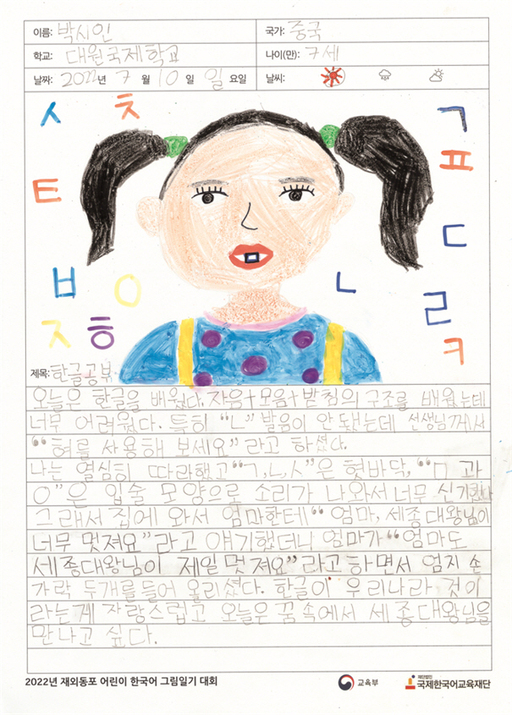 이름: 박시인
국가: 중국
학교: 대원국제학교
나이(만): 7세
날짜: 2022년 7월 10일 일요일
날씨:
ㅅ ㅊ ㄱ
ㅍ
ㅌ
ㄷ
ㅂ ㅇ ㄴ
ㄹ
ㅈ ㅎ
ㅋ
제목: 한글공부
오늘은 한글을 배웠다. 자음+모음+받침의 구조를 배웠는데
너무 어려웠다. 특히 “ㄴ” 발음이 안 됐는데 선생님께서
“혀를 사용해 보세요” 라고 하셨다.
나는 열심히 따라했고 “ㄱ,ㄴ,ㅅ”은 혓바닥, “ㅁ과
ㅇ”은 입술 모양으로 소리가 나와서 너무 신기했다
그래서 집에 와서 엄마한테 “엄마, 세종대왕님이
너무 멋져요” 라고 얘기했더니 엄마가 “엄마도
세종대왕님이 제일 멋져요” 라고 하면서 엄지 손
가락 두개를 들어 올리셨다. 한글이 우리나라 것이
라는게 자랑스럽고 오늘은 꿈 속에서 세종대왕님을
만나고 싶다.
2022년 재외동포 어린이 한국어 그림일기 대회
교육부
재단법인
국제한국어교육재단